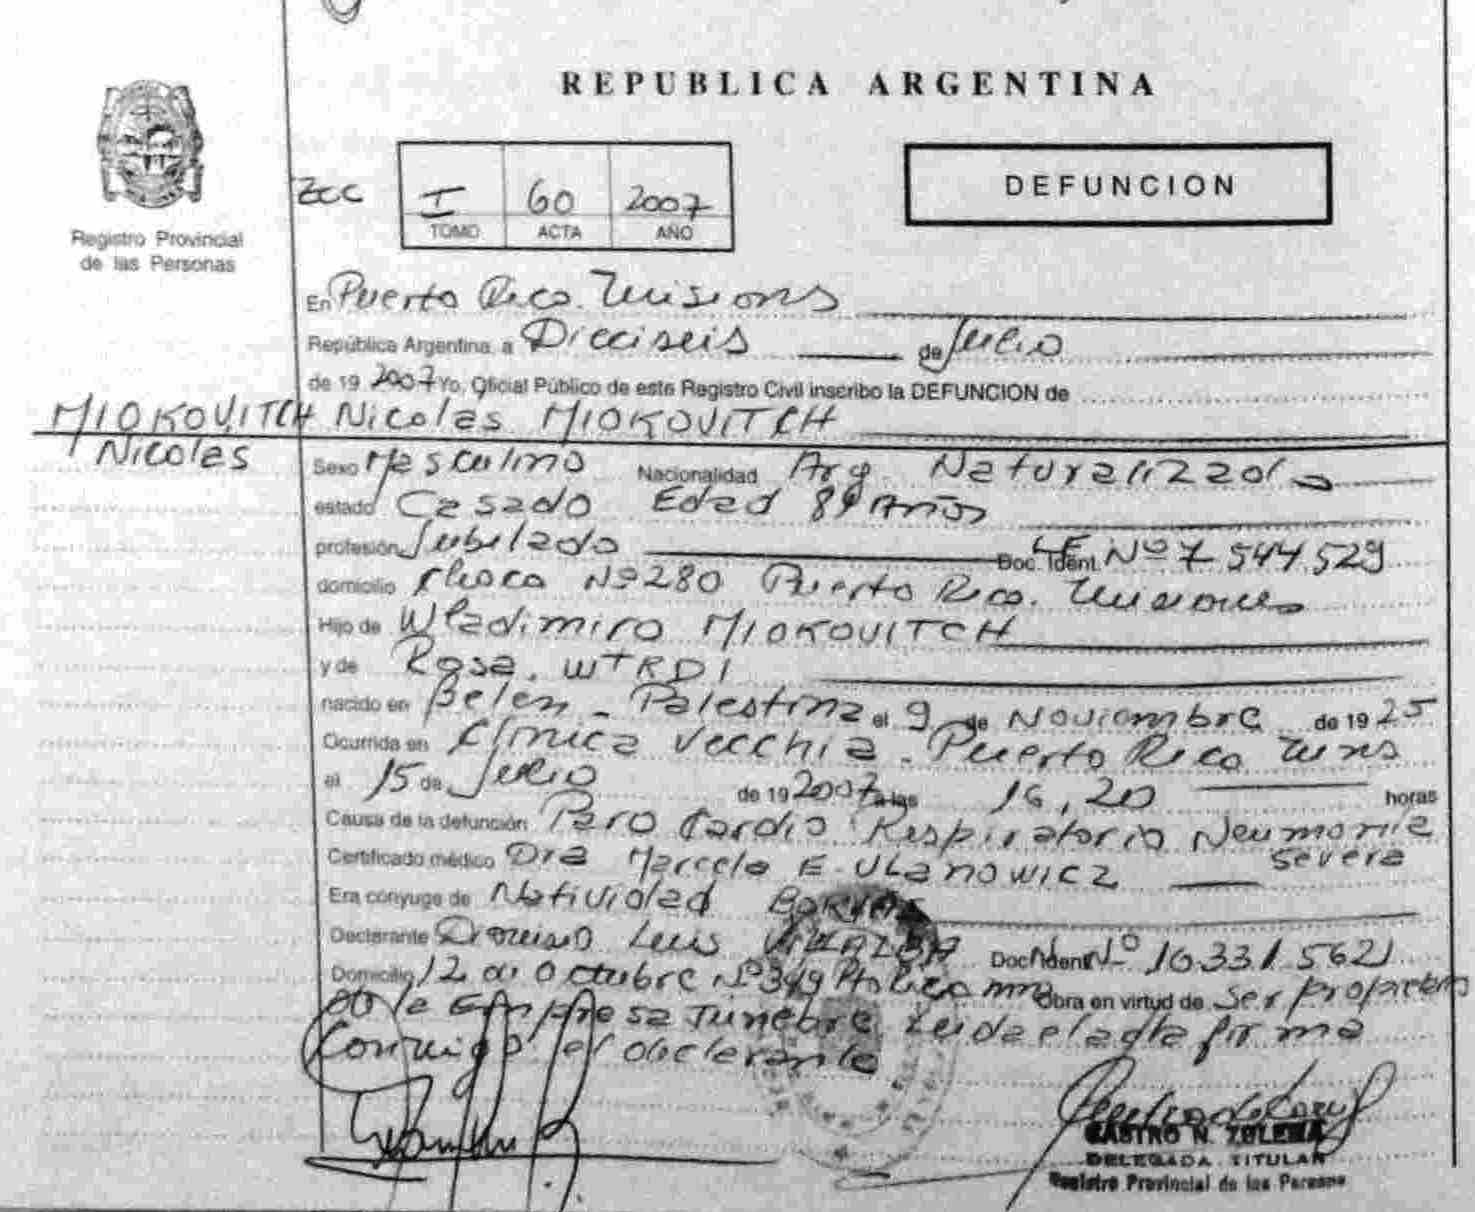 REPUBLICA ARGENTINA
DEFUNCION
I 60 2007
TOMO ACTA AÑO
Registro Provincial
de las Personas
En Puerto Rico. Misiones
República Argentina a Dieciseis de Julio
de 19 2007 Yo, Oficial Público de este Registro Civil inscribo la DEFUNCION de
MIOKOVITCH Nicolas MIOKOVITCH
Nicolas
Sexo Masculino Nacionalidad Arg. Naturalizado
estado Casado Edad Años
profesión Jubilado Doc. Ident. LE Nº 7.544.529
domicilio Chaca Nº 280 Puerto Rico. Misiones
Hijo de Wladimiro MIOKOVITCH
y de Rosa.
nacido en Belen - Palestina el 9 de Noviembre de 19 25
Ocurrida en Clinica Vecchia - Puerto Rico Mnes
el 15 de Julio de 19 2007 a las 16,20 horas
Causa de la defunción Paro Cardio Respiratorio Neumonia
Severa
Certificado médico Dra Marcela E. ULanowicz
Era cónyuge de Natividad
Declarante Dionisio Luis Doc. Ident. Nº 16.331.562
Domicilio 12 de Octubre Nº 349 Pto Rico mnes Obra en virtud de Ser propietario
de la Empresa Funebre Leida el acta firma
Conmigo el declarante
CASTRO N. ZULEMA
DELEGADA TITULAR
Registro Provincial de las Persona